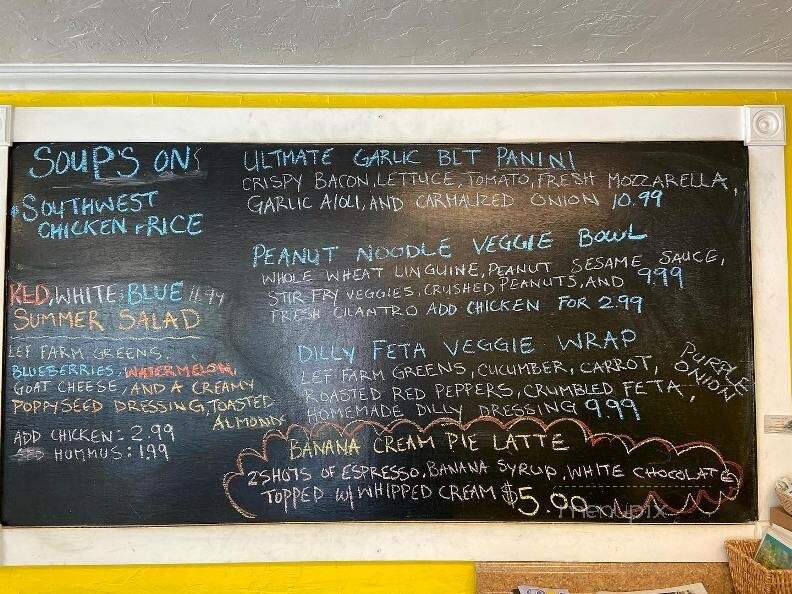 SOUP'S ON
SOUTHWEST
CHICKEN & RICE
RED, WHITE, BLUE 11.99
SUMMER SALAD
LEF FARM GREENS,
BLUEBERRIES, WATERMELON,
GOAT CHEESE, AND A CREAMY
POPPYSEED DRESSING, TOASTED
ALMONDS
ADD CHICKEN: 2.99
ADD HUMMUS: 1.99
ULTMATE GARLIC BLT PANINI
CRISPY BACON, LETTUCE, TOMATO, FRESH MOZZARELLA,
GARLIC AIOLI, AND CARMALIZED ONION 10.99
PEANUT NOODLE VEGGIE BOWL
WHOLE WHEAT LINGUINE, PEANUT SESAME SAUCE,
STIR FRY VEGGIES, CRUSHED PEANUTS, AND 9.99
FRESH CILANTRO ADD CHICKEN FOR 2.99
DILLY FETA VEGGIE WRAP
LEF FARM GREENS, CUCUMBER, CARROT, PURPLE ONION
ROASTED RED PEPPERS, CRUMBLED FETA,
HOMEMADE DILLY DRESSING 9.99
BANANA CREAM PIE LATTE
2 SHOTS OF ESPRESSO, BANANA SYRUP, WHITE CHOCOLATE
TOPPED W/ WHIPPED CREAM $5.99
menupix